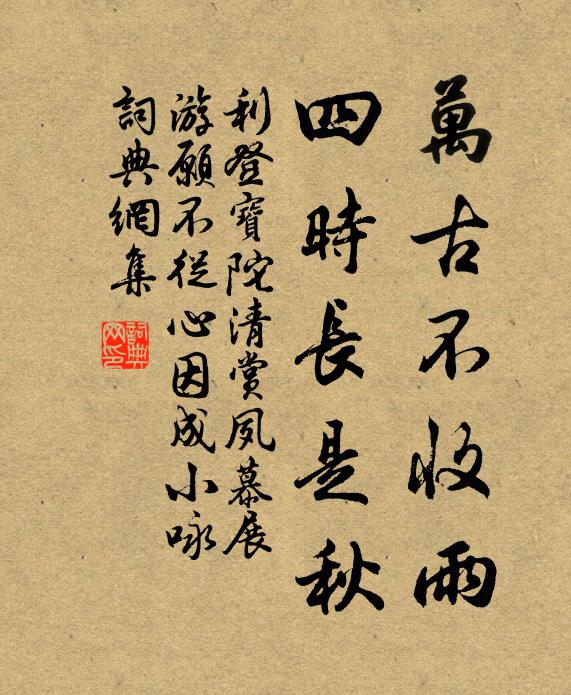 萬古不收雨
四時長是秋
利登寶陀清賞夙慕展
游願不從心因成小咏
詞典網集
詞典网印